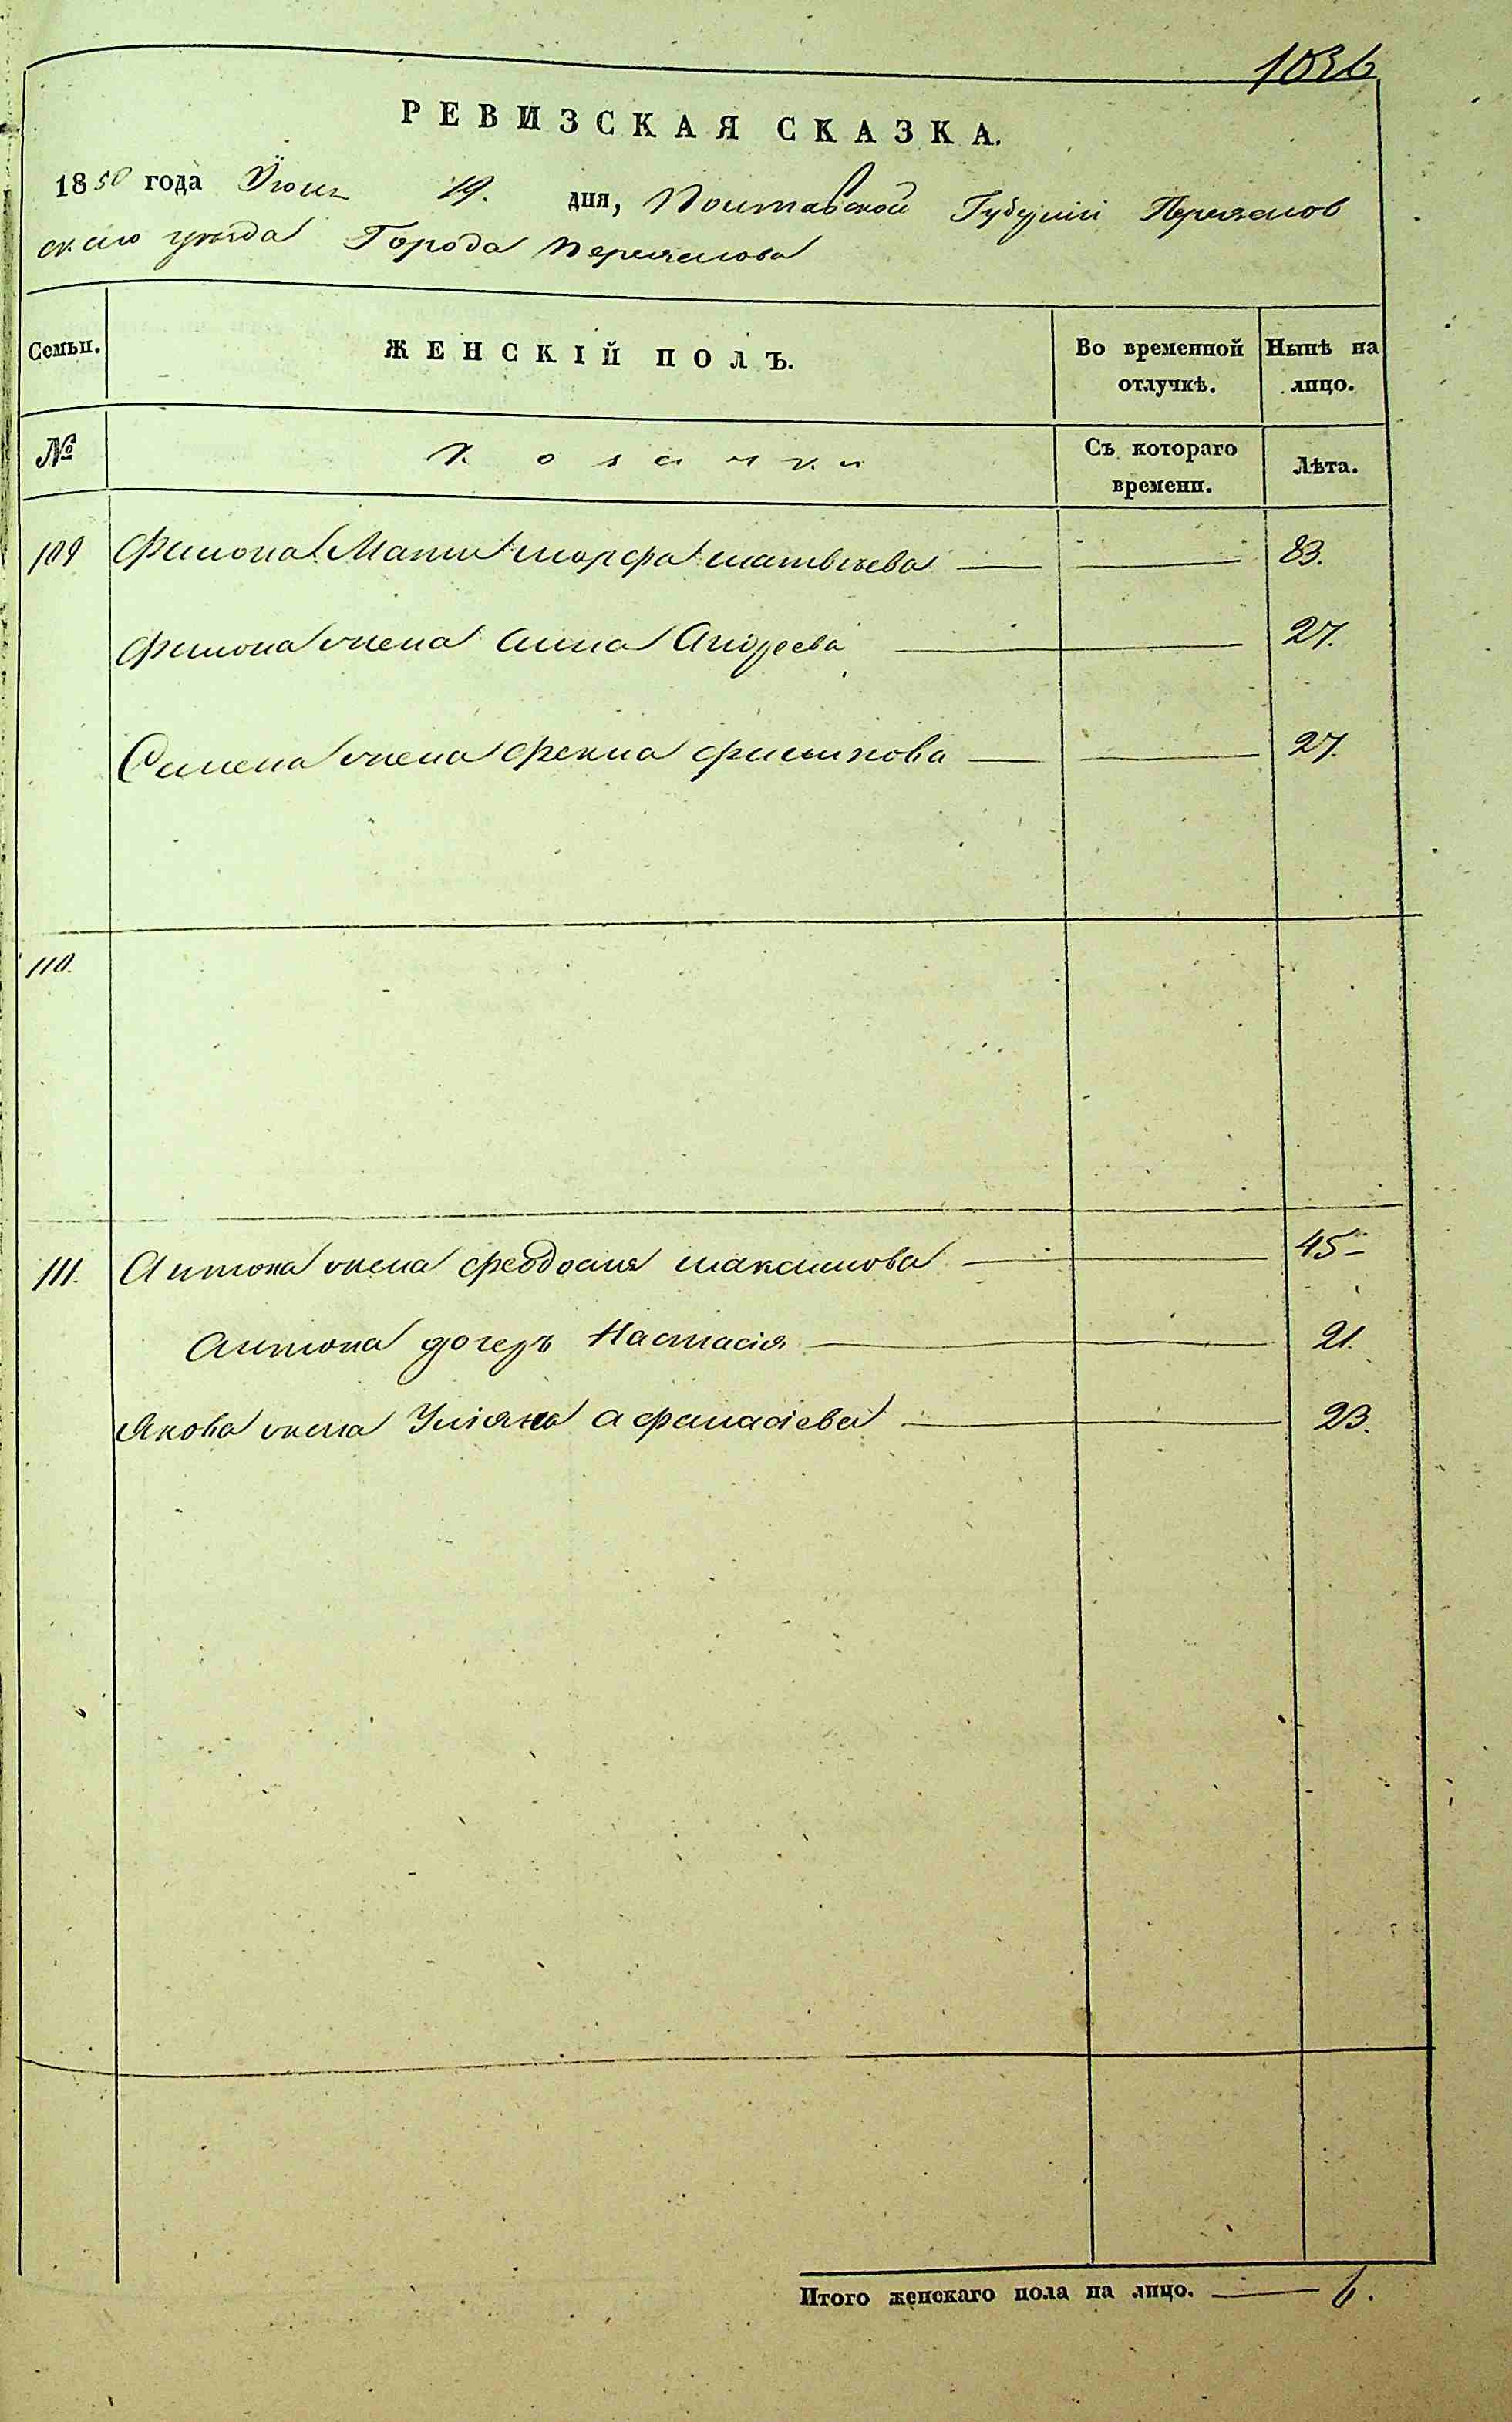 1036
РЕВИЗСКАЯ СКАЗКА.
1850 года Июня 19. дня, Полтавской Губерніи Переяслов
скаго уезда Города Переяслова
Семьи. ЖЕНСКІЙ ПОЛЪ. Во временной отлучкѣ. Нынѣ на лицо.
№ Козачки Съ котораго времени. Лѣта.
109 Филона Мать марфа матвѣева — — 83.
филона жена анна Андреева — 27.
Семена жена фекла филипова — — 27.
110.
111. Антона жена феодосия максимова — 45
антона дочеръ Настасія — 21.
Якова жена Уліяна афанасіева — 23.
Итого женскаго пола на лицо. — 6.